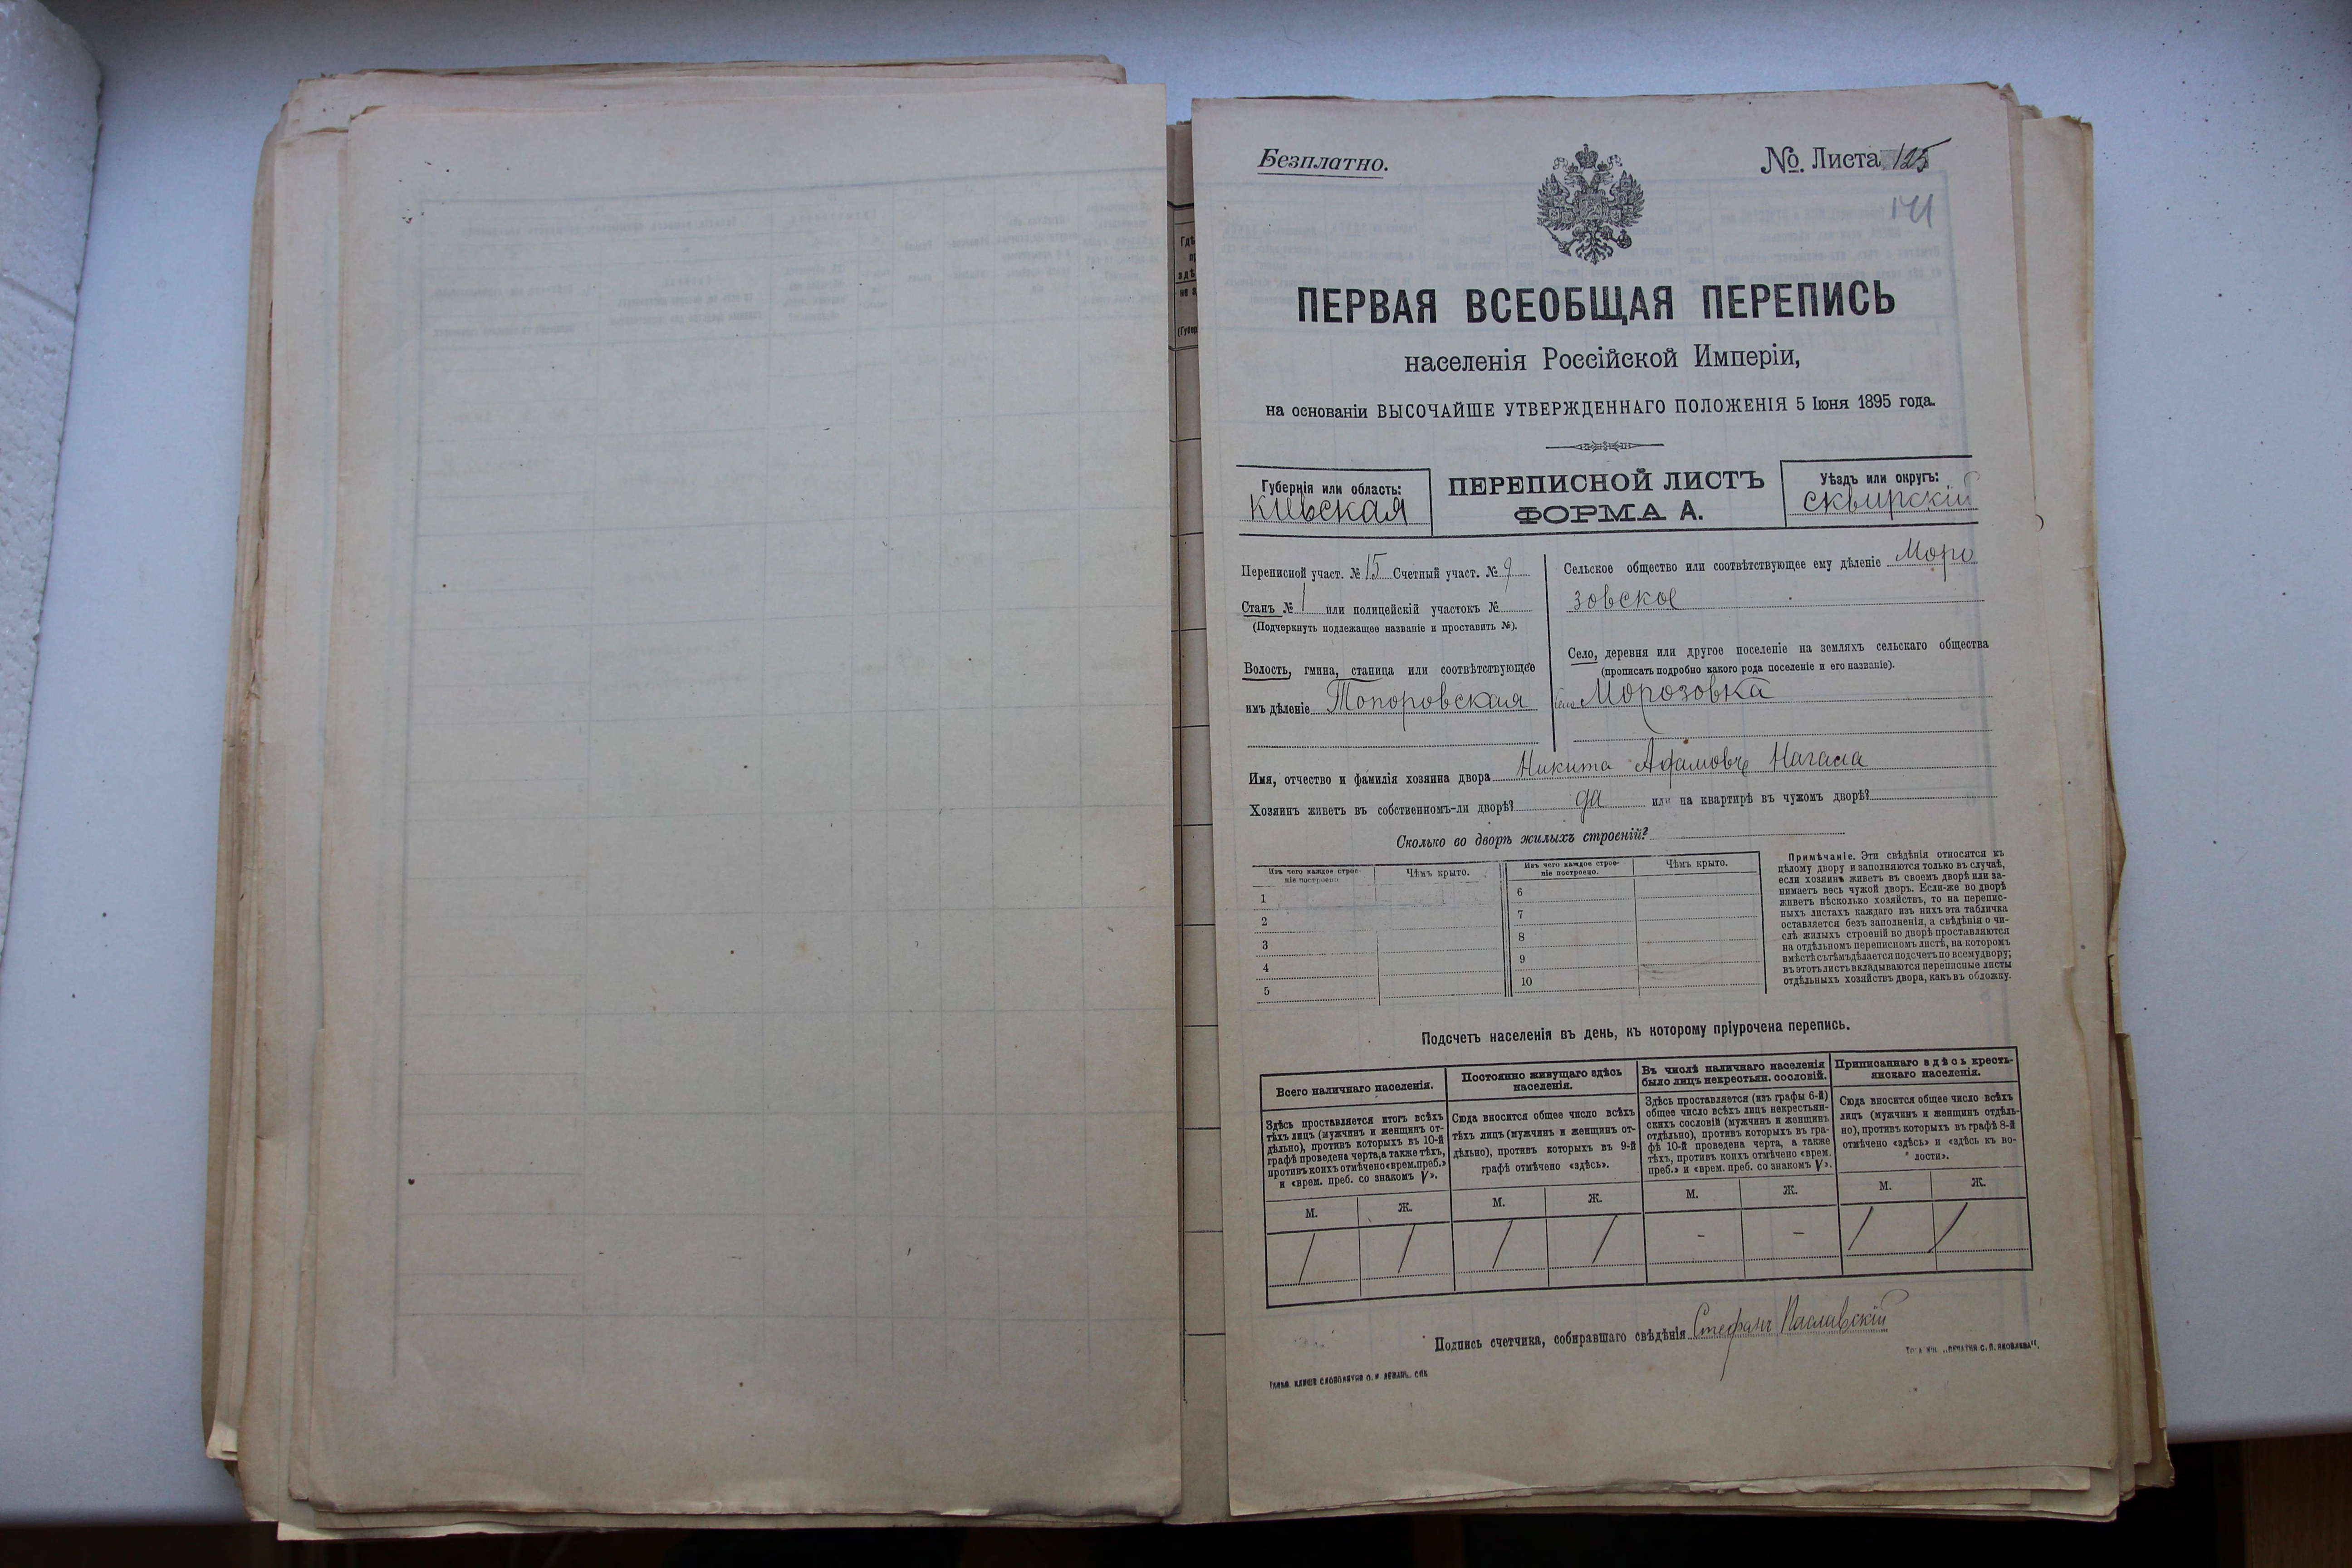 Безплатно.
№. Листа 125
141
ПЕРВАЯ ВСЕОБЩАЯ ПЕРЕПИСЬ
населенія Россійской Имперіи,
на основаніи ВЫСОЧАЙШЕ УТВЕРЖДЕННАГО ПОЛОЖЕНІЯ 5 Іюня 1895 года.
Губернія или область:
Кіевская
ПЕРЕПИСНОЙ ЛИСТЪ
ФОРМА А.
Уѣздъ или округъ:
Сквирскій
Переписной участ. № 15 Счетный участ. № 9
Станъ № 1 или полицейскій участокъ №
(Подчеркнуть подлежащее названіе и проставить №).
Волость, гмина, станица или соотвѣтствующее
имъ дѣленіе Топоровская
Сельское общество или соотвѣтствующее ему дѣленіе Моро
зовское
Село, деревня или другое поселеніе на земляхъ сельскаго общества
(прописать подробно какого рода поселеніе и его названіе).
Село Морозовка
Имя, отчество и фамилія хозяина двора Никита
Хозяинъ живетъ въ собственномъ-ли дворѣ? да или на квартирѣ въ чужомъ дворѣ?
Сколько во дворѣ жилыхъ строеній?
Изъ чего каждое строе-
ніе построено.
Чѣмъ крыто.
1
2
3
4
5
Изъ чего каждое строе-
ніе построено.
Чѣмъ крыто.
6
7
8
9
10
Примѣчаніе. Эти свѣдѣнія относятся къ
цѣлому двору и заполняются только въ случаѣ,
если хозяинъ живетъ въ своемъ дворѣ или за-
нимаетъ весь чужой дворъ. Если-же во дворѣ
живетъ нѣсколько хозяйствъ, то на перепис-
ныхъ листахъ каждаго изъ нихъ эта табличка
оставляется безъ заполненія, а свѣдѣнія о чи-
слѣ жилыхъ строеній во дворѣ проставляются
на отдѣльномъ переписномъ листѣ, на которомъ
вмѣстѣ съ тѣмъ дѣлается подсчетъ по всему двору;
въ этотъ листъ вкладываются переписные листы
отдѣльныхъ хозяйствъ двора, какъ въ обложку.
Подсчетъ населенія въ день, къ которому пріурочена перепись.
Всего наличнаго населенія.
Здѣсь проставляется итогъ всѣхъ
тѣхъ лицъ (мужчинъ и женщинъ от-
дѣльно), противъ которыхъ въ 10-й
графѣ проведена черта, а также тѣхъ,
противъ коихъ отмѣчено «врем. преб.»
и «врем. преб. со знакомъ V».
М. Ж.
1 1
Постоянно живущаго здѣсь
населенія.
Сюда вносится общее число всѣхъ
тѣхъ лицъ (мужчинъ и женщинъ от-
дѣльно), противъ которыхъ въ 9-й
графѣ отмѣчено «здѣсь».
М. Ж.
1 1
Въ числѣ наличнаго населенія
было лицъ некрестьян. сословій.
Здѣсь проставляется (изъ графы 6-й)
общее число всѣхъ лицъ некрестьян-
скихъ сословій (мужчинъ и женщинъ
отдѣльно), противъ которыхъ въ гра-
фѣ 10-й проведена черта, а также
тѣхъ, противъ коихъ отмѣчено «врем.
преб.» и «врем. преб. со знакомъ V».
М. Ж.
- -
Приписаннаго здѣсь кресть-
янскаго населенія.
Сюда вносится общее число всѣхъ
лицъ (мужчинъ и женщинъ отдѣль-
но), противъ которыхъ въ графѣ 8-й
отмѣчено «здѣсь» и «здѣсь къ во-
лости».
М. Ж.
1 1
Подпись счетчика, собиравшаго свѣдѣнія Стефанъ Паславскій